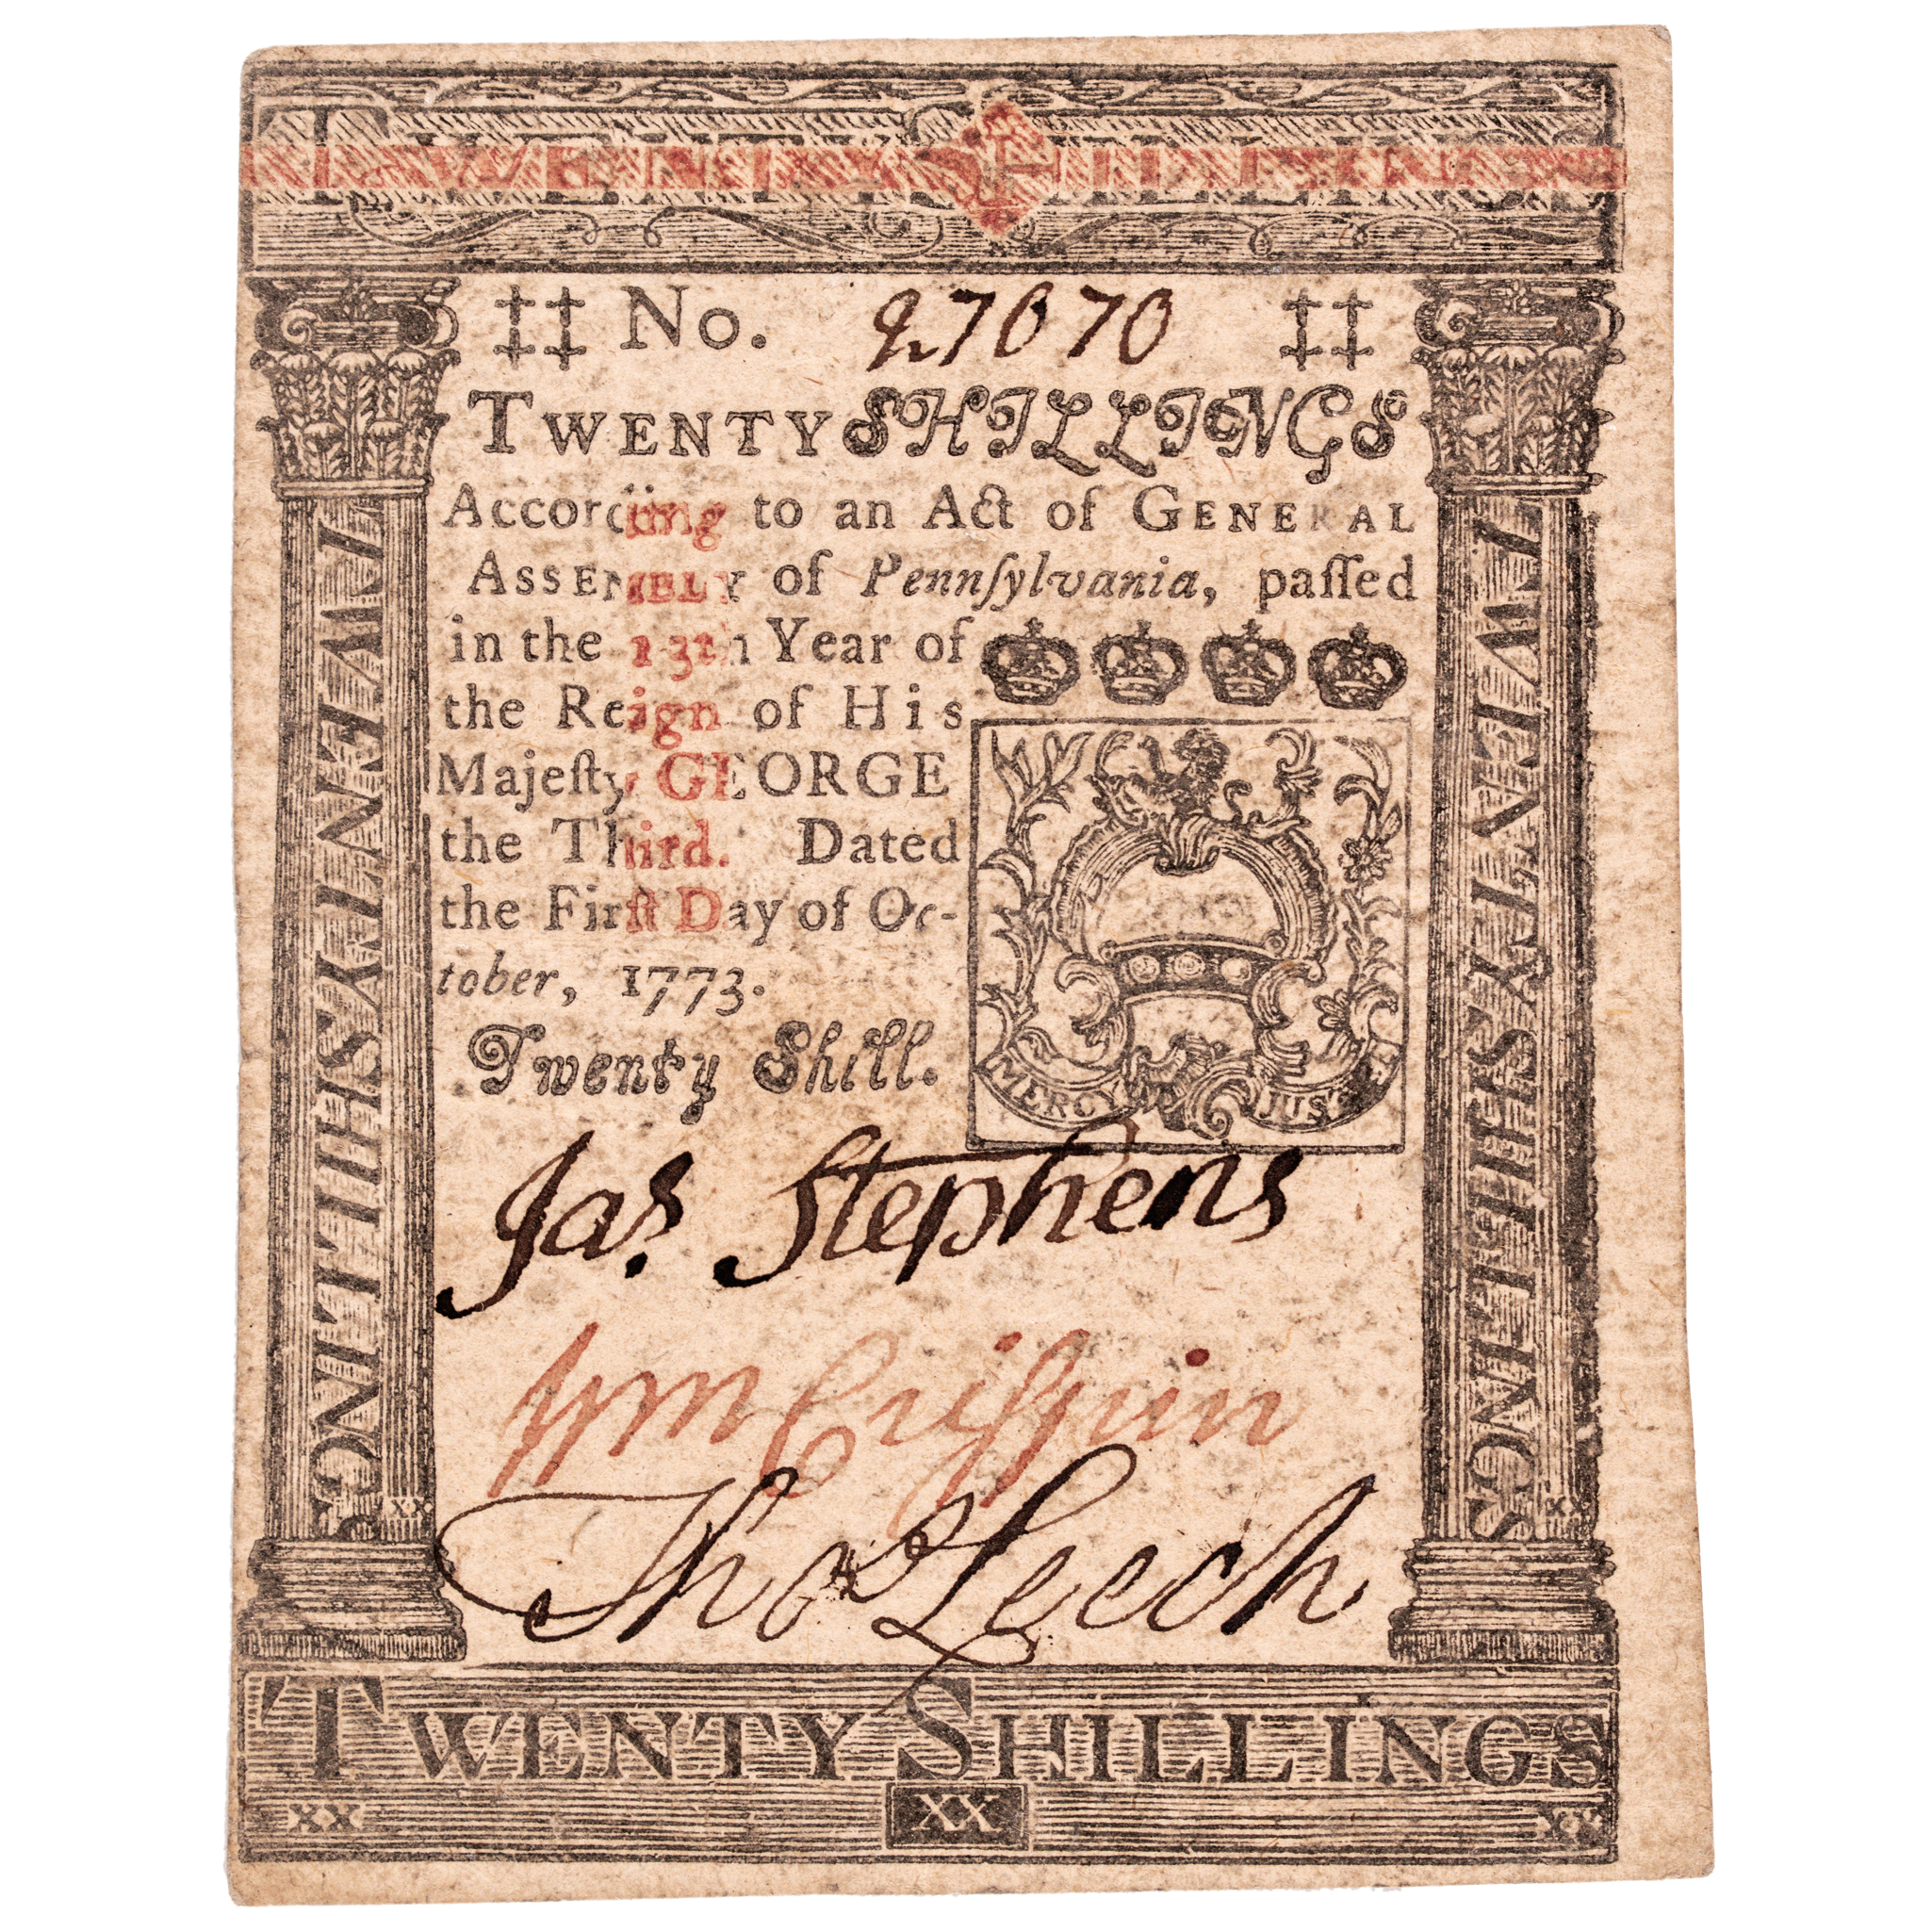 TWENTY SHILLINGS
‡‡ No. 27070 ‡‡
TWENTY SHILLINGS
According to an Act of GENERAL
ASSEMBLY of Pennſylvania, paſſed
in the 13th Year of
the Reign of His
Majeſty GEORGE
the Third. Dated
the Firſt Day of Oc-
tober, 1773.
Twenty Shill.
MERCY JUST
Jas. Stephens
Wm Criſpin
Thos Leech
TWENTY SHILLINGS
XX XX XX
TWENTY SHILLING
XX
TWENTY SHILLINGS
XX